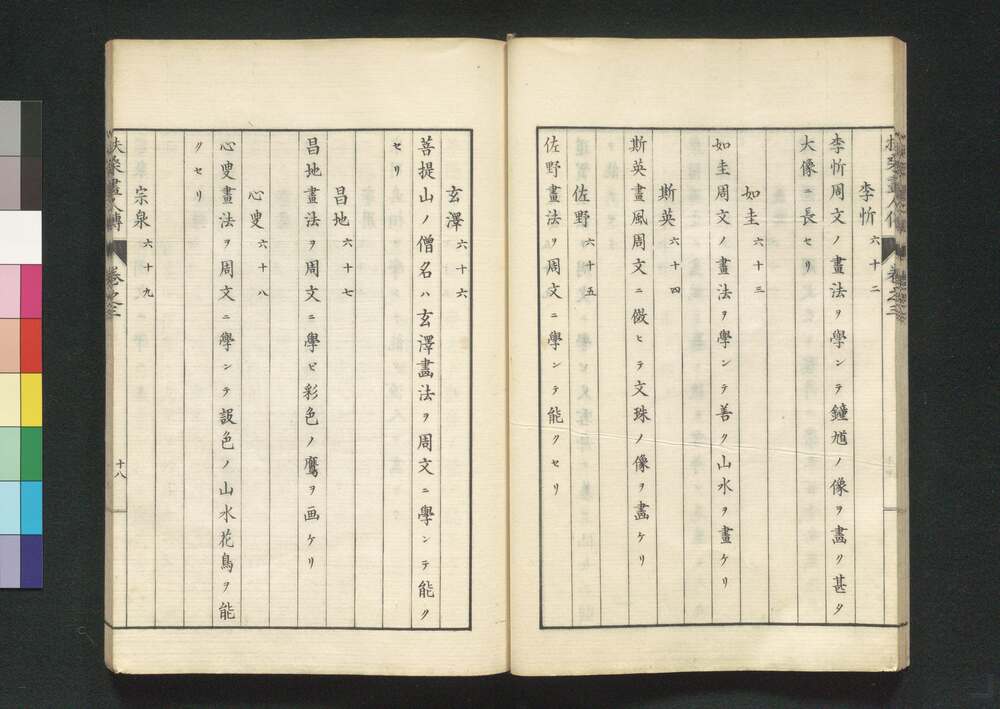 李忻 六十二
李忻周文ノ畫法ヲ學ンテ鐘馗ノ像ヲ畵ク甚タ
大像ニ長セリ
如圭 六十三
如圭周文ノ畫法ヲ學ンテ善ク山水ヲ畫ケリ
斯英 六十四
斯英畫風周文ニ倣ヒテ文珠ノ像ヲ畵ケリ
佐野 六十五
佐野畫法ヲ周文ニ學ンテ能クセリ
玄澤 六十六
菩提山ノ僧名ハ玄澤畵法ヲ周文ニ學ンテ能ク
セリ
昌地 六十七
昌地畫法ヲ周文ニ學ヒ彩色ノ鷹ヲ画ケリ
心叟 六十八
心叟畫法ヲ周文ニ學ンテ設色ノ山水花鳥ヲ能
クセリ
宗泉 六十九
扶桑畫人傳 卷之三 十八